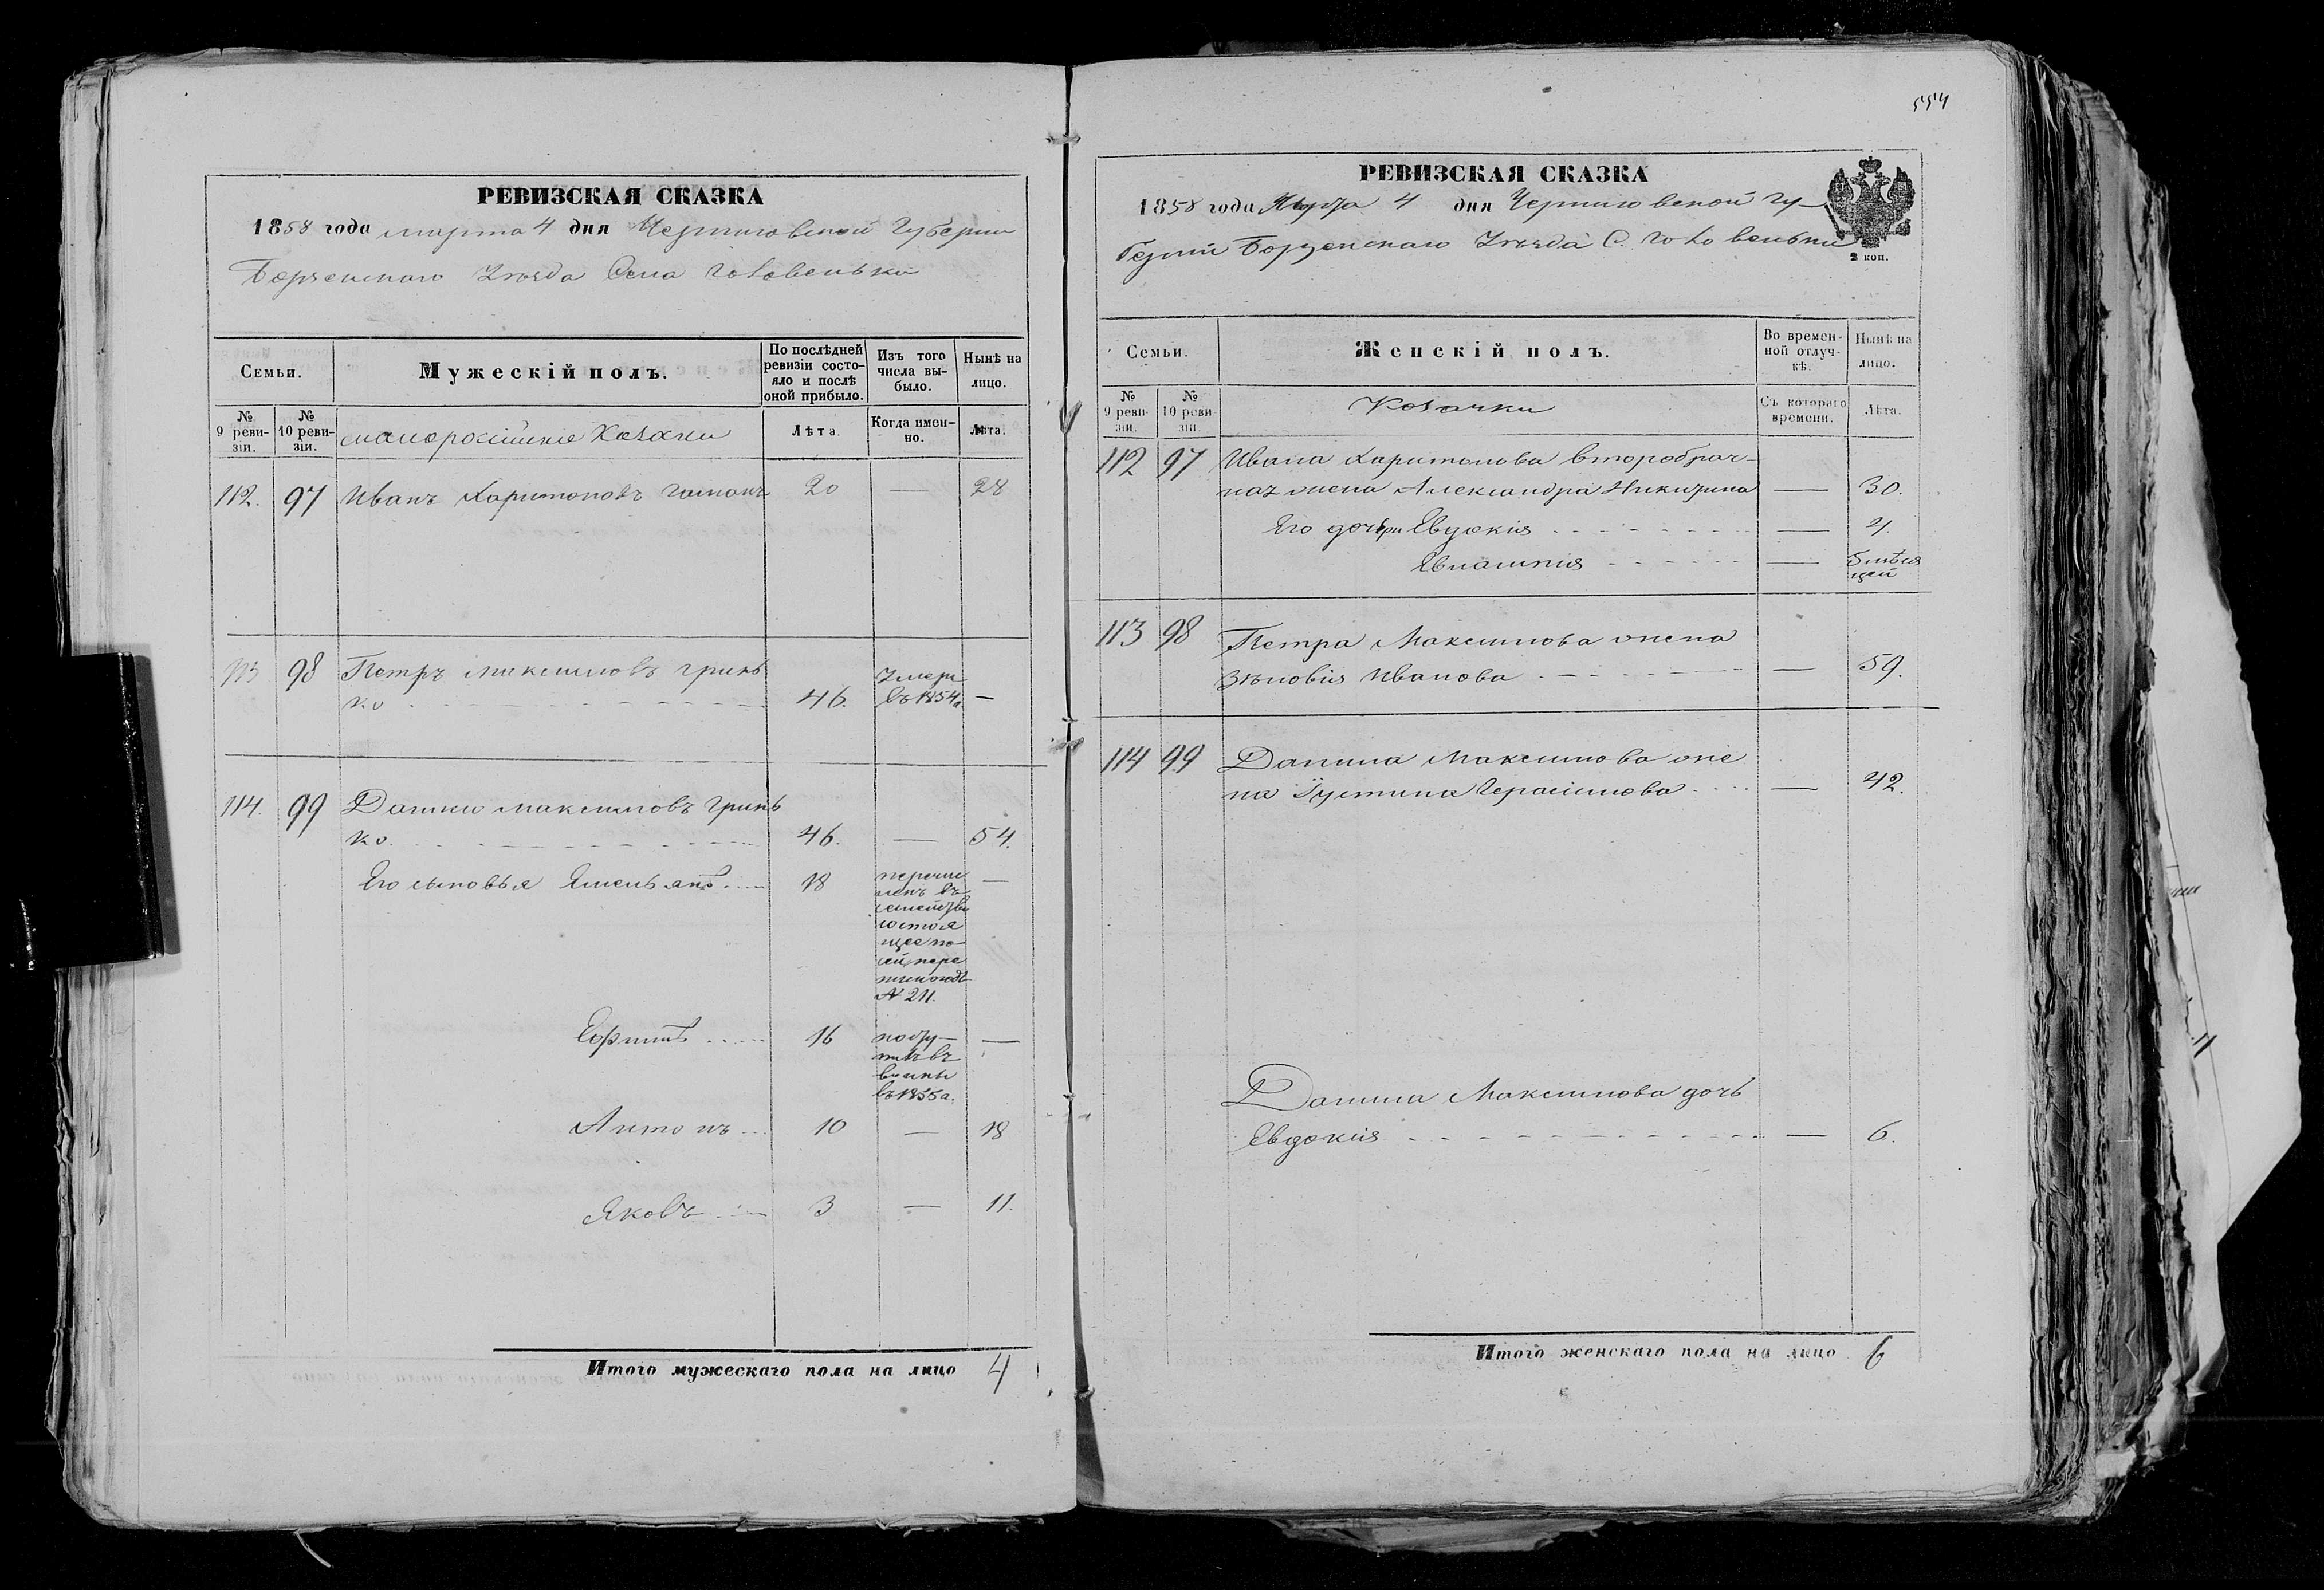 РЕВИЗСКАЯ СКАЗКА
1858 года марта 4 дня Черниговской Губернии
Борзенскаго Уѣзда Села
Семьи.
Мужескій полъ.
По послѣдней ревизіи состояло и послѣ оной прибыло.
Изъ того числа выбыло.
Нынѣ на лицо.
№ 9 ревизіи.
№ 10 ревизіи.
малоросійскіе Козаки
Лѣта.
Когда именно.
Лѣта.
112. 97 Иванъ Харитоновъ 20 — 28
113 98 Петръ Максимовъ Гринь
ко 46. Умеръ въ 1854 —
114. 99 Данило Максимовъ Гринь
ко 46. — 54.
Его сыновья Емельянъ 18 перечис
ленъ въ
семейство
состоя
щее по
сей
№ 211.
—
Ефимъ 16
въ
—
Антонъ 10 — 18
Яковъ 3 — 11.
Итого мужескаго пола на лицо 4
554
РЕВИЗСКАЯ СКАЗКА
1858 года Марта 4 дня Черниговской Гу-
берніи Борзенскаго Уѣзда С.
2 коп.
Семьи.
Женскій полъ.
Во временной отлучкѣ.
Нынѣ на лицо.
№ 9 ревизіи.
№ 10 ревизіи.
Козачки
Съ котораго времени.
Лѣта.
112 97 Ивана Харитонова второбрач-
ная жена Александра Никитина — 30.
Его дочери Евдокія — 4.
— 5 мѣся
цей
113 98 Петра Максимова жена
Зѣновія Иванова — 59.
114 99 Данила Максимова же
на Іустина Герасимова — 42.
Данила Максимова дочь
Евдокія — 6.
Итого женскаго пола на лицо 6